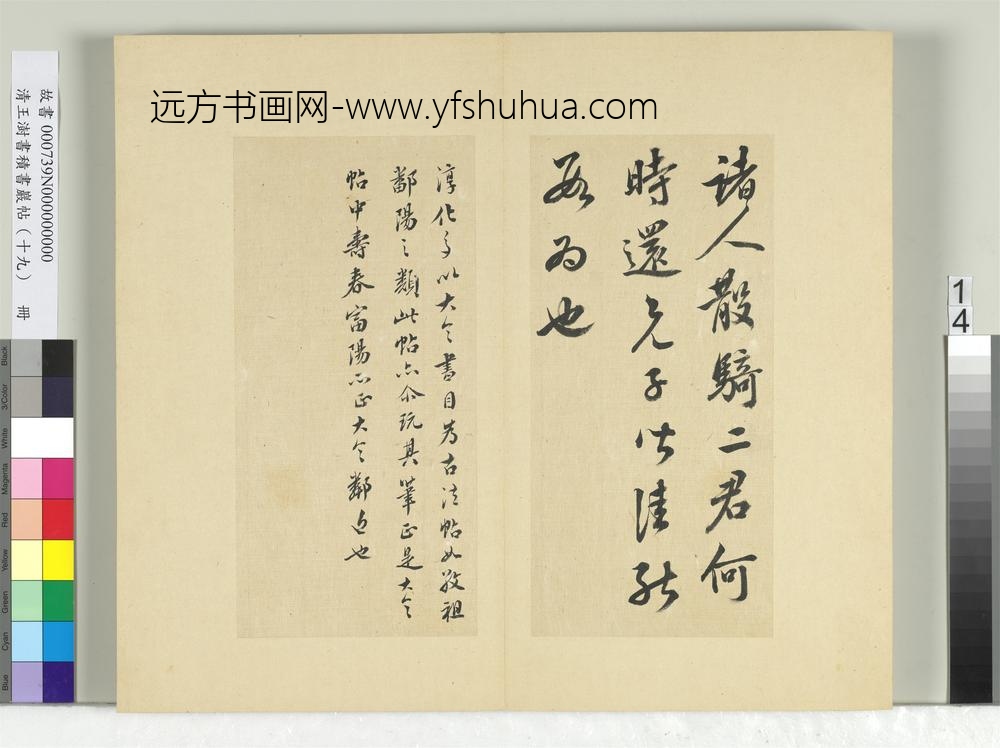 远方书画网-www.yfshuhua.com
故書 000739N000000000
清王澍書積書巖帖（十九） 冊
諸人散騎二君何
時還兄子皆佳
為也
淳化多以大令書目為古法帖如敬祖
鄱陽之類此帖亦介玩其筆正是大令
帖中壽春富陽正大令鄰近也
1
4
Black
3/Color
White
Magenta
Red
Yellow
Green
Cyan
Blue